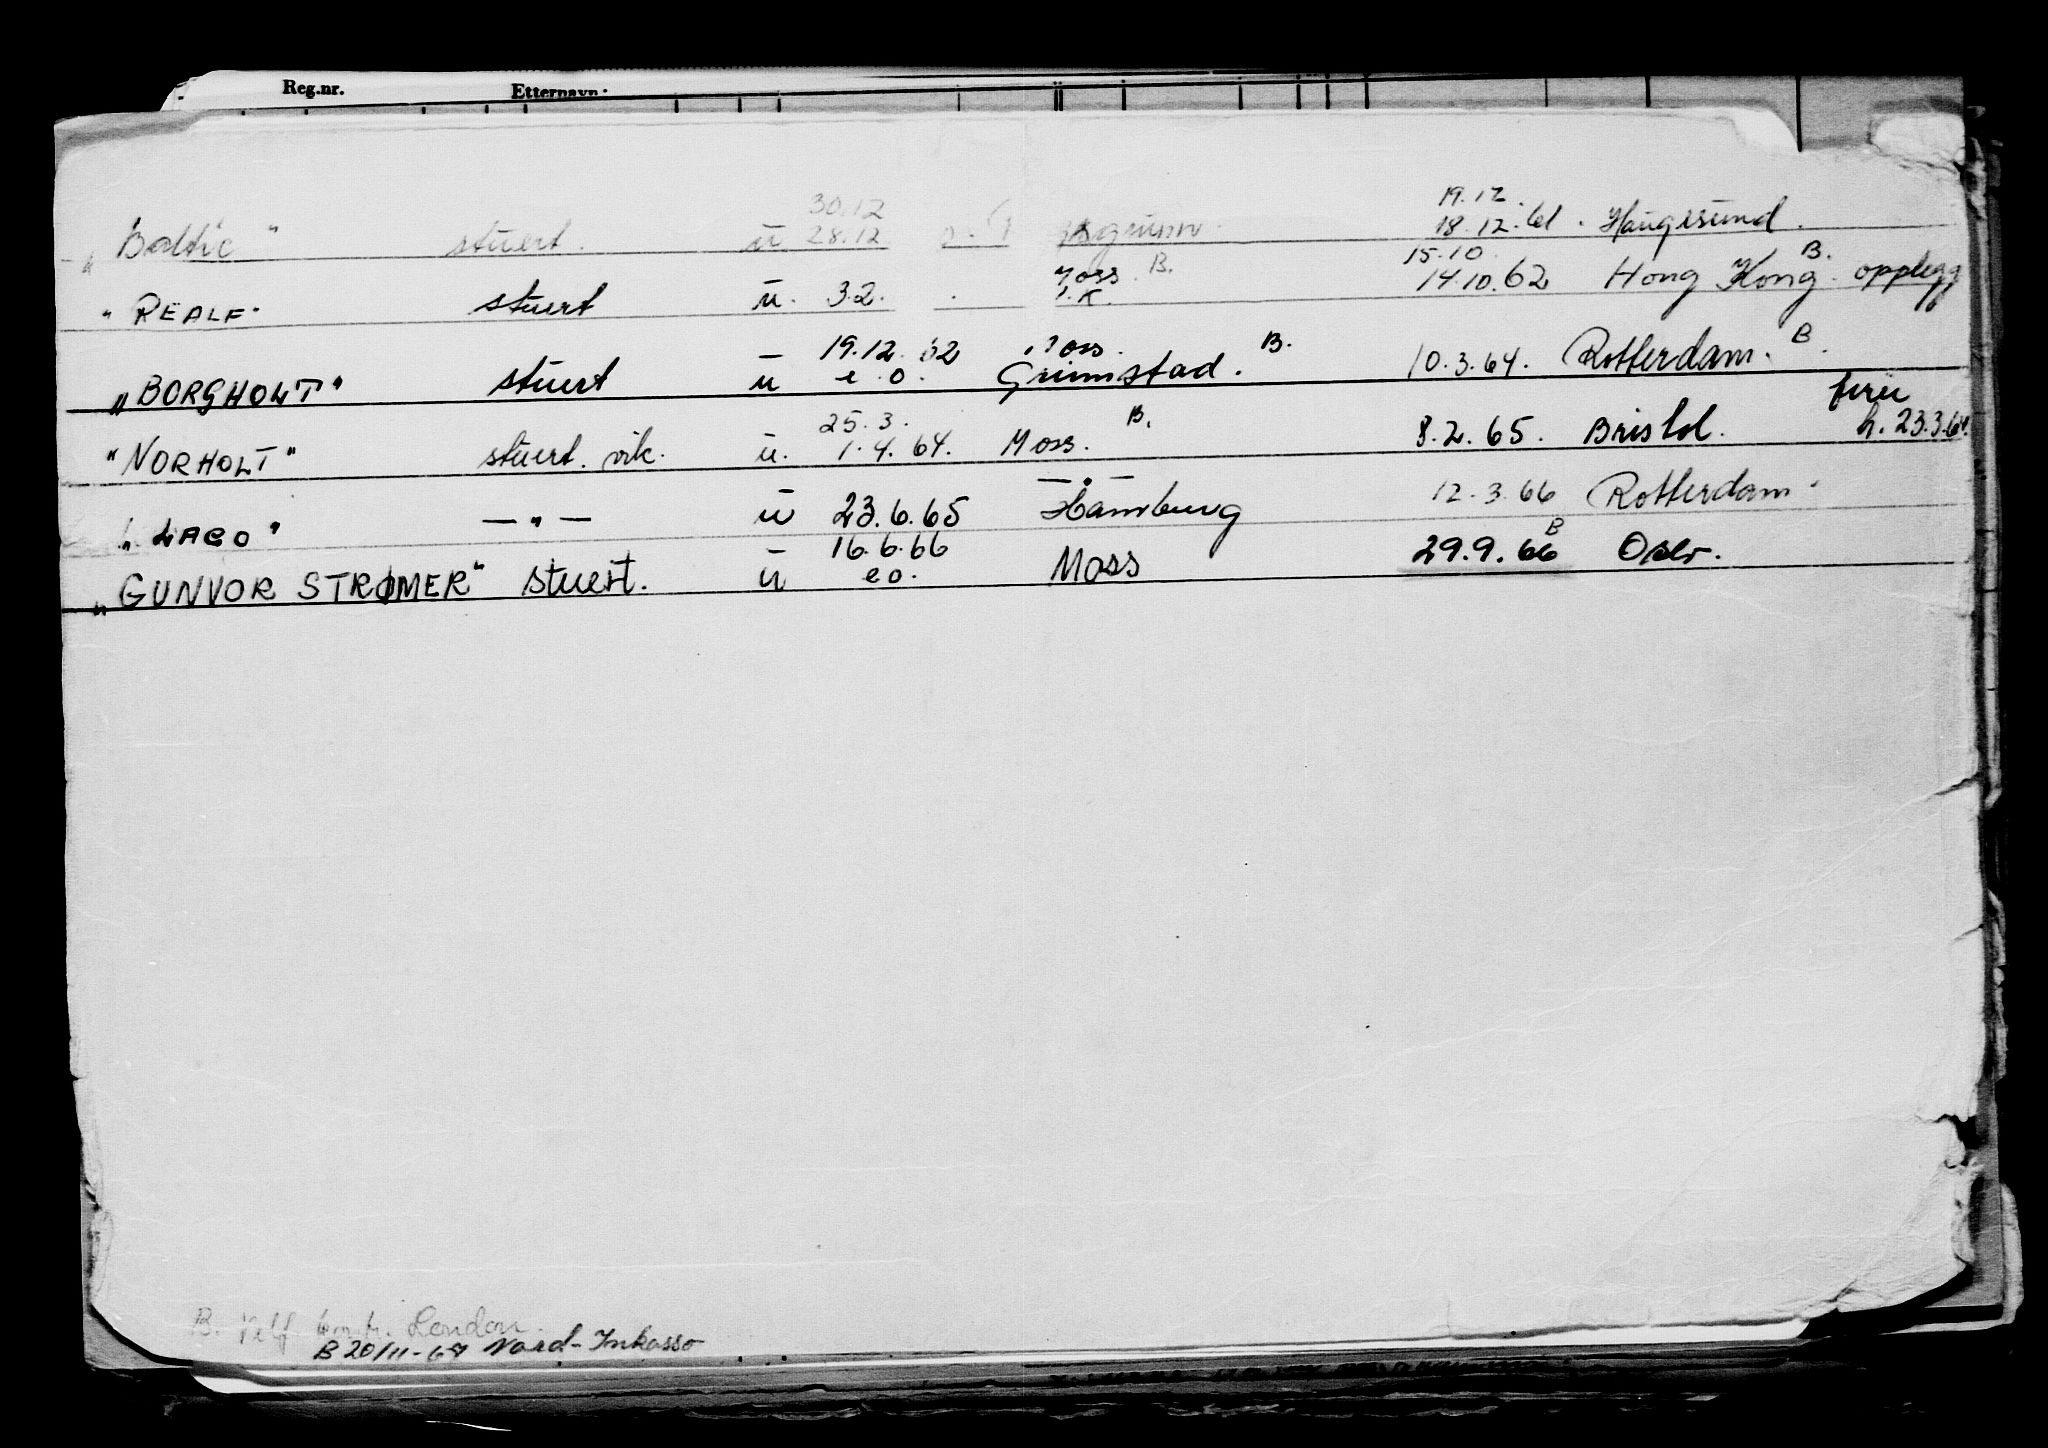 Reg.nr. Etternavn:
30.12 19.12.
"Baltic" stuert. u 28.12 18.12.61. Haugesund.
15.10.
"REALF" stuert u. 3.2. Moss B. 14.10.62 Hong Kong B. opplegg
19.12.62 Moss.
"BORGHOLT" stuert u e.o. Grimstad. B. 10.3.64. Rotterdam. B.
ferie
25.3.
"NORHOLT" stuert. vik. u. 1.4.64. Moss. B. 8.2.65. Bristol. h. 23.3.64.
"LAGO" — " — u 23.6.65 Hamburg 12.3.66 Rotterdam.
16.6.66
"GUNVOR STRØMER" stuert. u e o. Moss 29.9.66 B Oslo.
B. Velf. kontr. London.
B 20/11-67 Nord-Inkasso